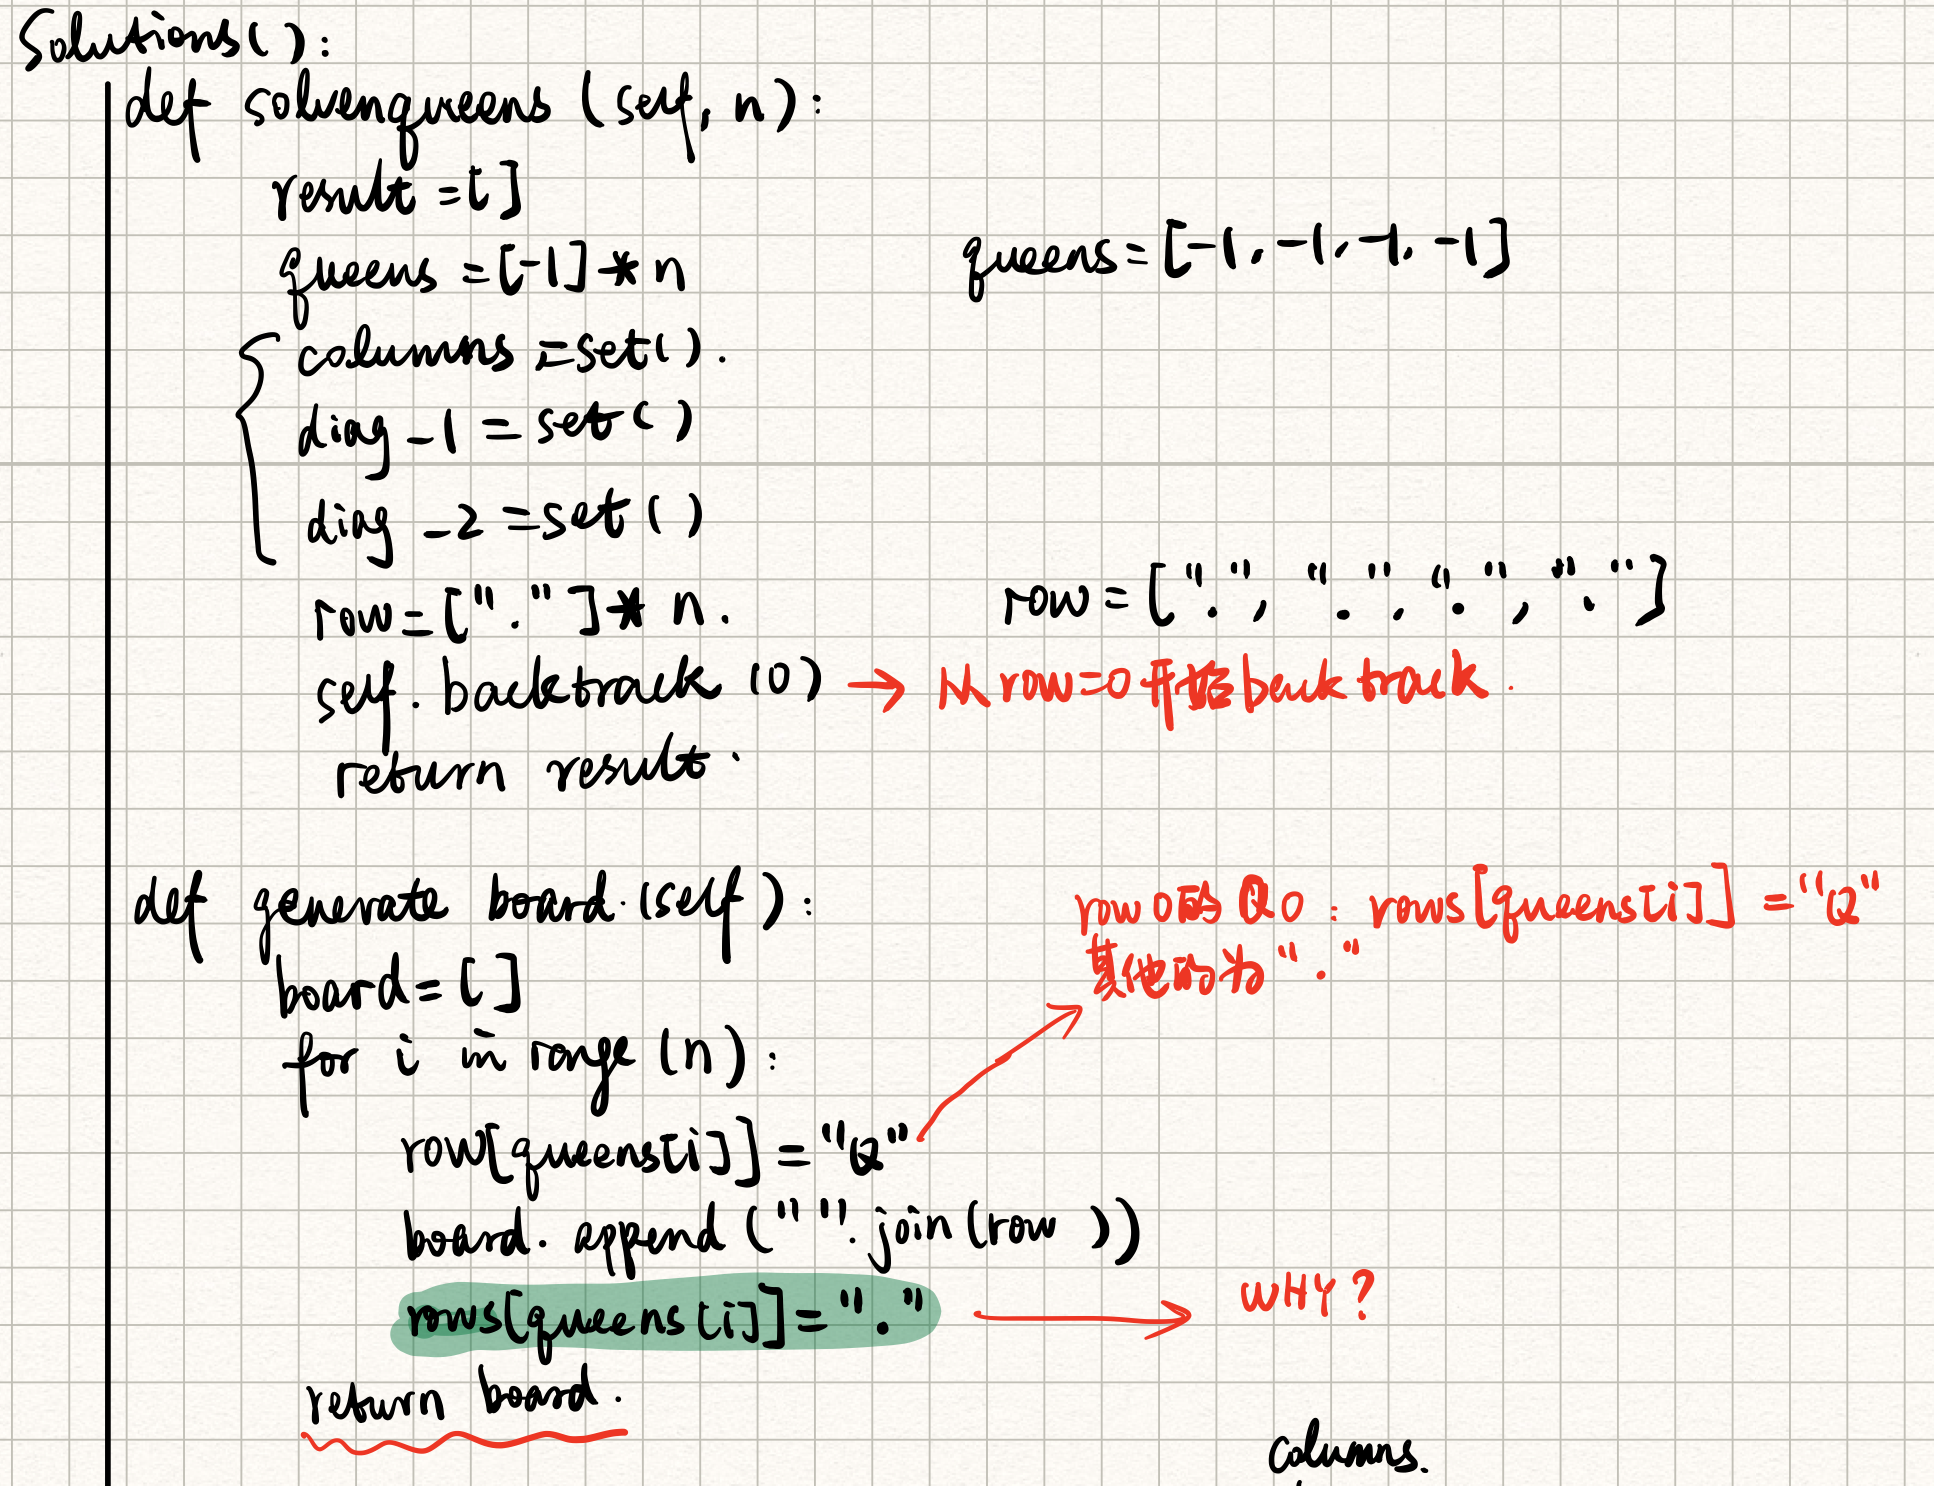 Solutions():
def solvenqueens (self, n):
result = []
queens = [-1] * n
queens = [-1, -1, -1, -1]
columns = set().
diag_1 = set()
diag_2 = set()
row = ["."] * n.
row = [".", ".", ".", "."]
self. backtrack (0) → 从 row=0 开始 backtrack.
return result.
def generate board. (self):
row 0的 Q0 : rows[queens[i]] = "Q"
其他的为 "."
board = []
for i in range (n):
row[queens[i]] = "Q"
board. append ("". join (row ))
rows[queens[i]] = "." → WHY?
return board.
columns.